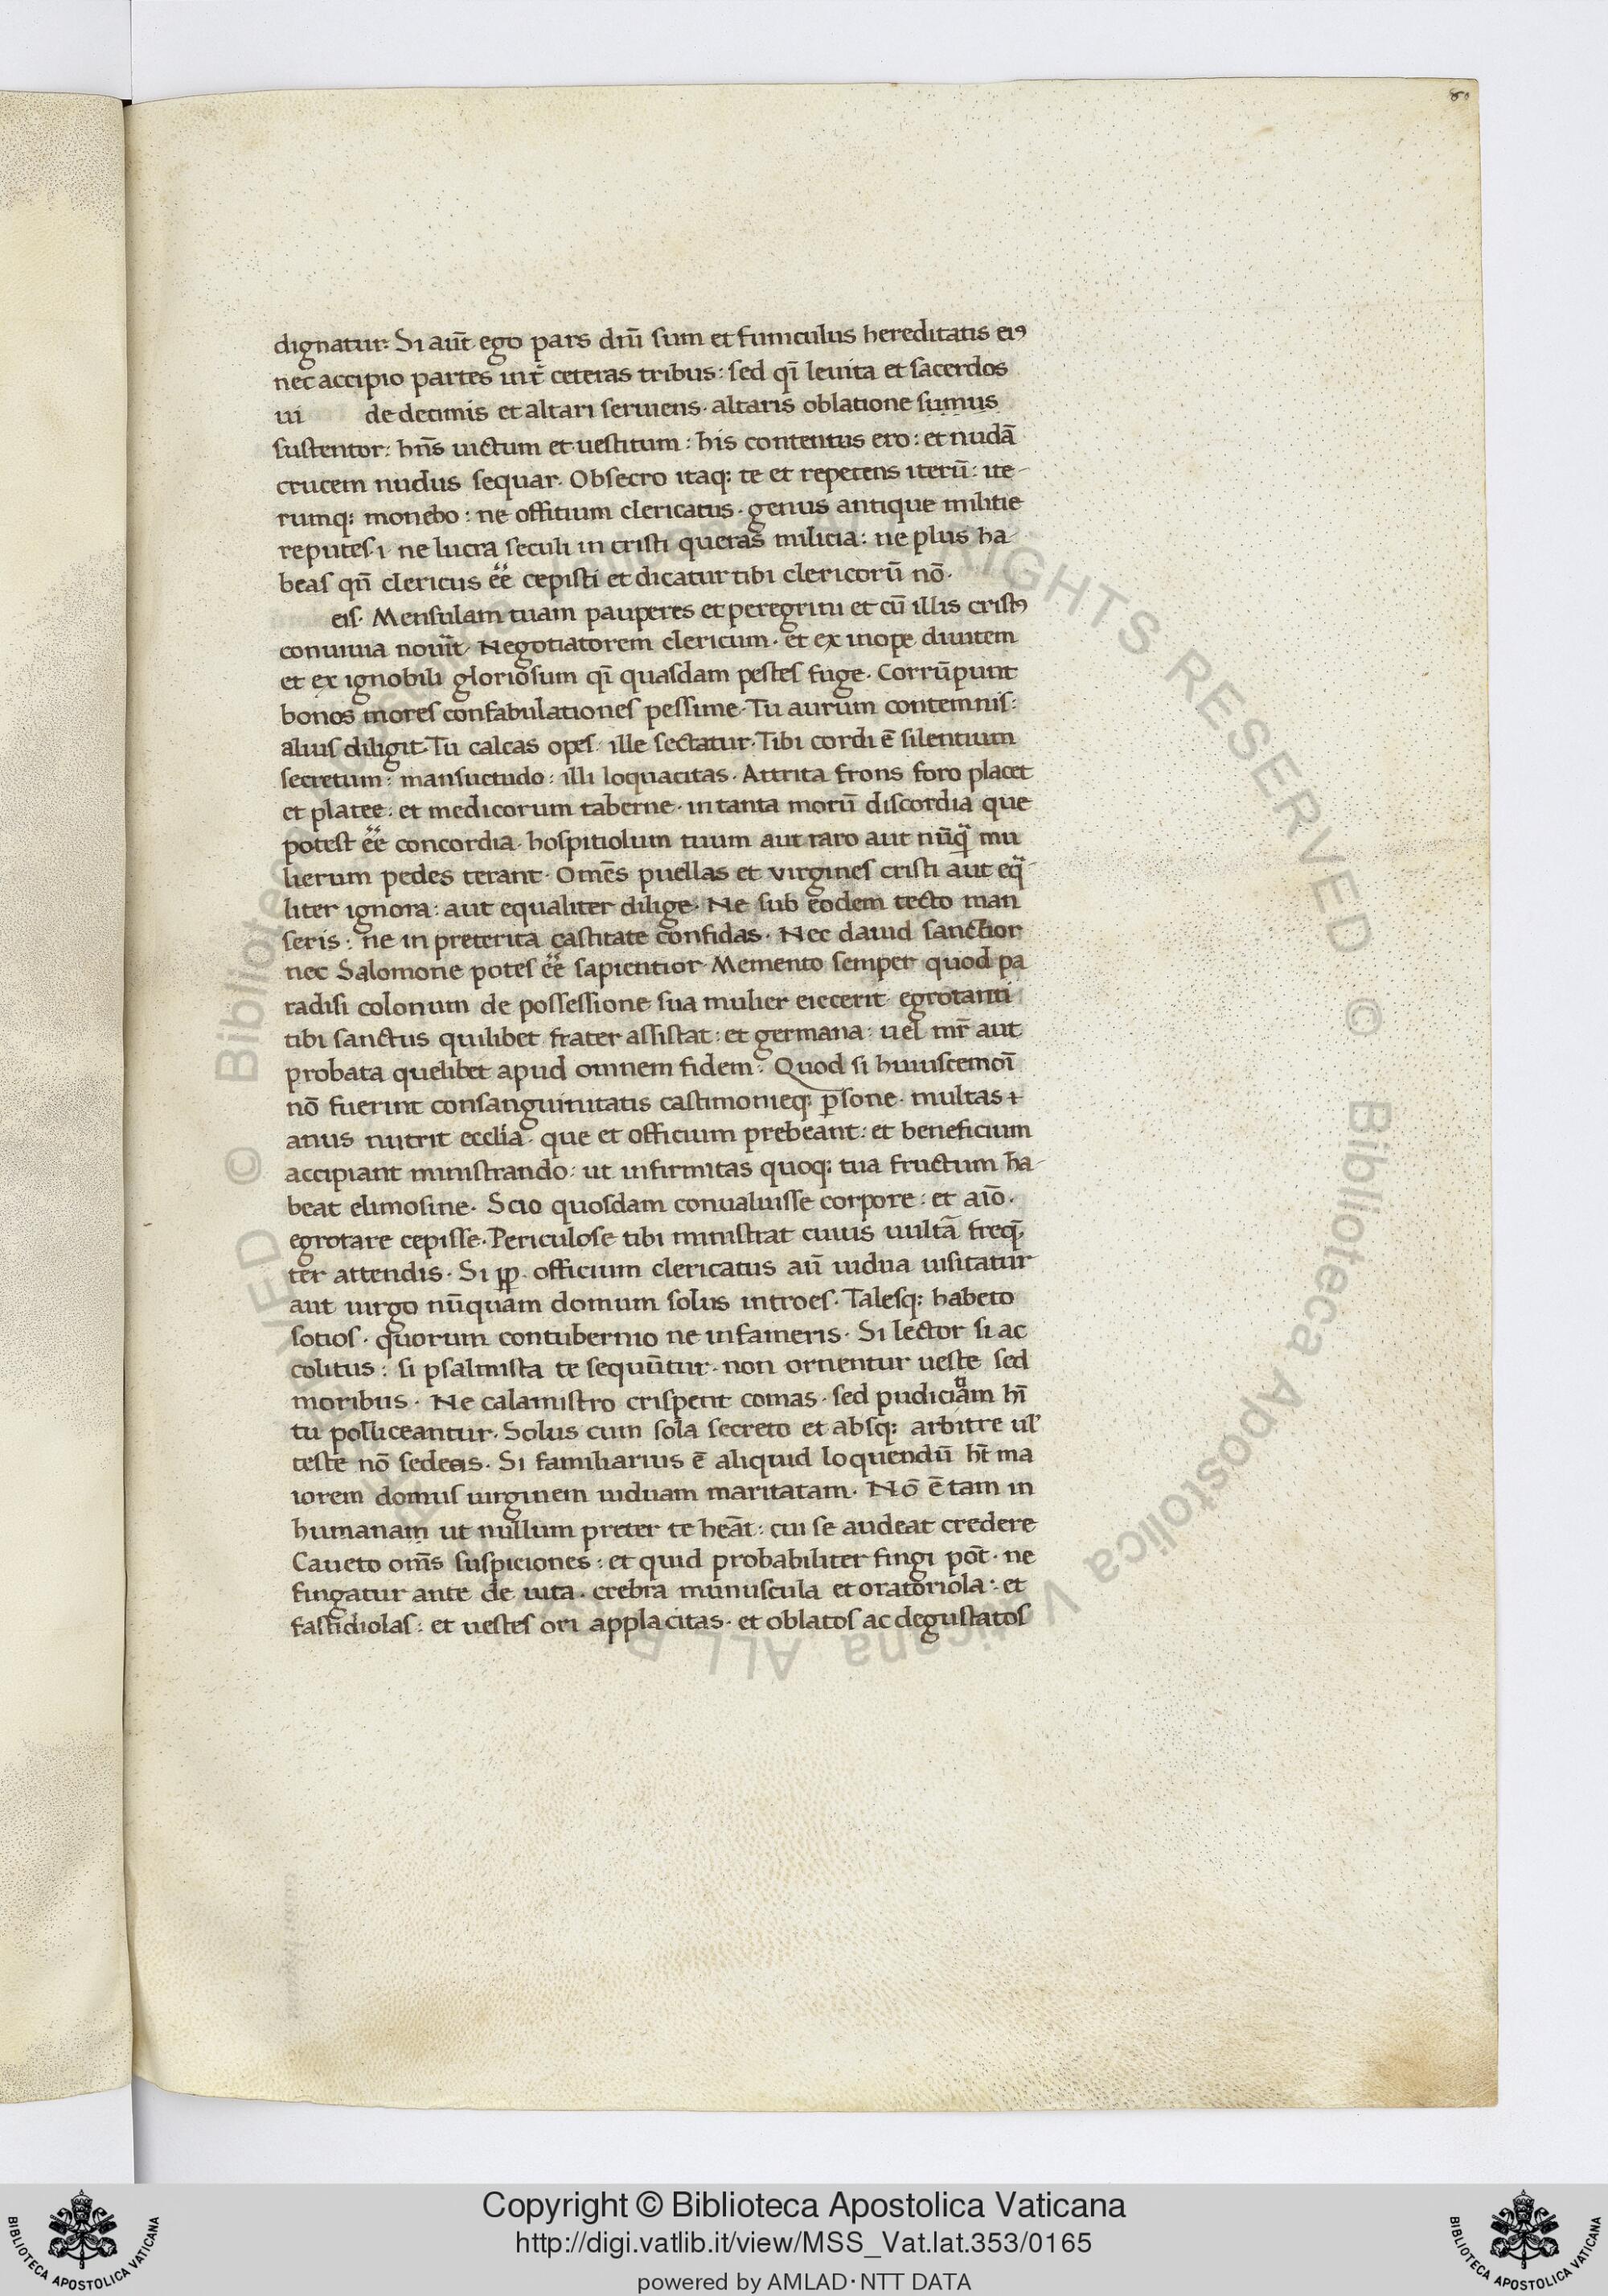 80
dignatur: Si aūt ego pars dnī sum et funiculus hereditatis eiꝰ
nec accipio partes int̄ ceteras tribus: sed qī levita et sacerdos
ui de decimis et altari serviens· altaris oblatione sumus
sustentor: hn̄s victum et vestitum: his contentus ero: et nudā
crucem nudus sequar· Obsecro itaq: te et repetens iterū: ite-
rumq: monebo: ne offitium clericatus· genus antique militie
reputes·i· ne lucra seculi in cristi queras milicia: ne plus ha-
beas qn̄ clericus ēē cepisti et dicatur tibi clericorū nō·
eis· Mensulam tuam pauperes et peregrini et cū illis cristꝰ
conviva noverit· Negotiatorem clericum· et ex inope divitem
et ex ignobili gloriosum qī quasdam pestes fuge· Corrūpunt
bonos mores confabulationes pessime· Tu aurum contemnis:
alius diligit· Tu calcas opes: ille sectatur· Tibi cordi ē silentium
secretum: mansuetudo: illi loquacitas· Attrita frons foro placet
et platee: et medicorum taberne· in tanta morū discordia que
potest ēē concordia· hospitiolum tuum aut raro aut nūqᵃ mu
lierum pedes terant· Omēs puellas et virgines cristi aut eqᵃ-
liter ignora: aut equaliter dilige· Ne sub eodem tecto man
seris: ne in preterita castitate confidas· Nec david sanctior
nec Salomone potes ēē sapientior· Memento semper quod pa
radisi colonum de possessione sua mulier eiecerit· egrotanti
tibi sanctus quilibet frater assistat: et germana: vel mr̄ aut
probata quelibet apud omnem fidem· Quod si huiuscemoī
nō fuerint consanguinitatis castimonieq: ꝑsone· multas ⁊
anus nutrit ecclīa· que et officium prebeant: et beneficium
accipiant ministrando: ut infirmitas quoq: tua fructum ha-
beat elimosine· Scio quosdam convaluisse corpore: et aīo·
egrotare cepisse· Periculose tibi ministrat cuius vultā freq̄·
ter attendis· Si ꝓp officium clericatus aū vidua visitatur
aut virgo nūquam domum solus introes· Talesq: habeto
sotios· quorum contubernio ne infameris· Si lector si ac
colitus: si psalmista te sequūtur· non ornentur veste sed
moribus· Ne calamistro crispent comas· sed pudiciam hī
tu polliceantur· Solus cum sola secreto et absq: arbitre ul'
teste nō sedeas· Si familiarius ē aliquid loquendū ht̄ ma
iorem domus virginem viduam maritatam· Nō ē tam in
humanam ut nullum preter te heāt: cui se audeat credere
Caveto om̄s suspiciones: et quid probabiliter fingi pōt· ne
fingatur ante de vita· crebra munuscula et oratoriola: et
fastidiolas: et vestes ori applacitas· et oblatos ac degustatos
Copyright © Biblioteca Apostolica Vaticana
http://digi.vatlib.it/view/MSS_Vat.lat.353/0165
powered by AMLAD·NTT DATA